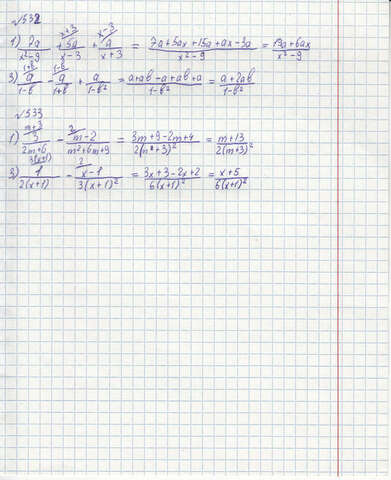 №532
1) 7a/(x²-9) + 5a/(x-3) [x+3] + a/(x+3) [x-3] = (7a+5ax+15a+ax-3a)/(x²-9) = (19a+6ax)/(x²-9)
3) a/(1-b) [1+b] - a/(1+b) [1-b] + a/(1-b²) = (a+ab-a+ab+a)/(1-b²) = (a+2ab)/(1-b²)
№533
1) 3/(2m+6) [m+3] - (m-2)/(m²+6m+9) [2] = (3m+9-2m+4)/(2(m+3)²) = (m+13)/(2(m+3)²)
3) 1/(2(x+1)) [3(x+1)] - (x-1)/(3(x+1)²) [2] = (3x+3-2x+2)/(6(x+1)²) = (x+5)/(6(x+1)²)